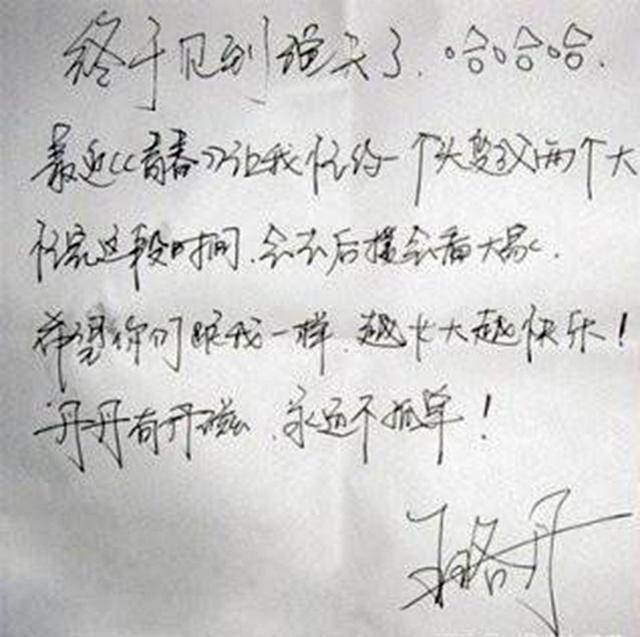 终于见到磁夫了.哈哈哈.
最近《青春》让我忙的一个头变成两个大
忙完这段时间.会去后援会看大家.
希望你们跟我一样.越长大越快乐!
丹丹有丹磁.永远不孤单!
王珞丹